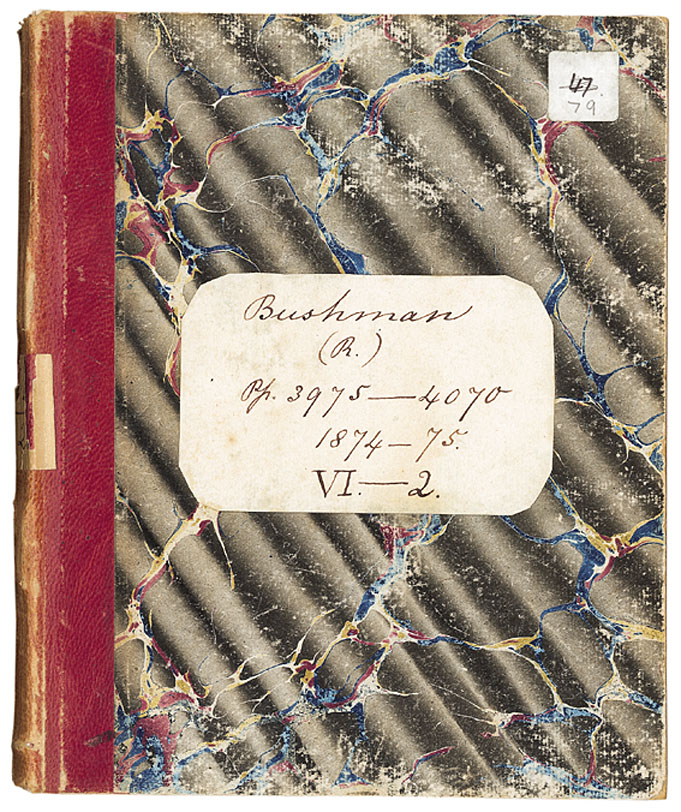 47.
79
Bushman
(R.)
Pp. 3975—4070
1874—75.
VI.—2.